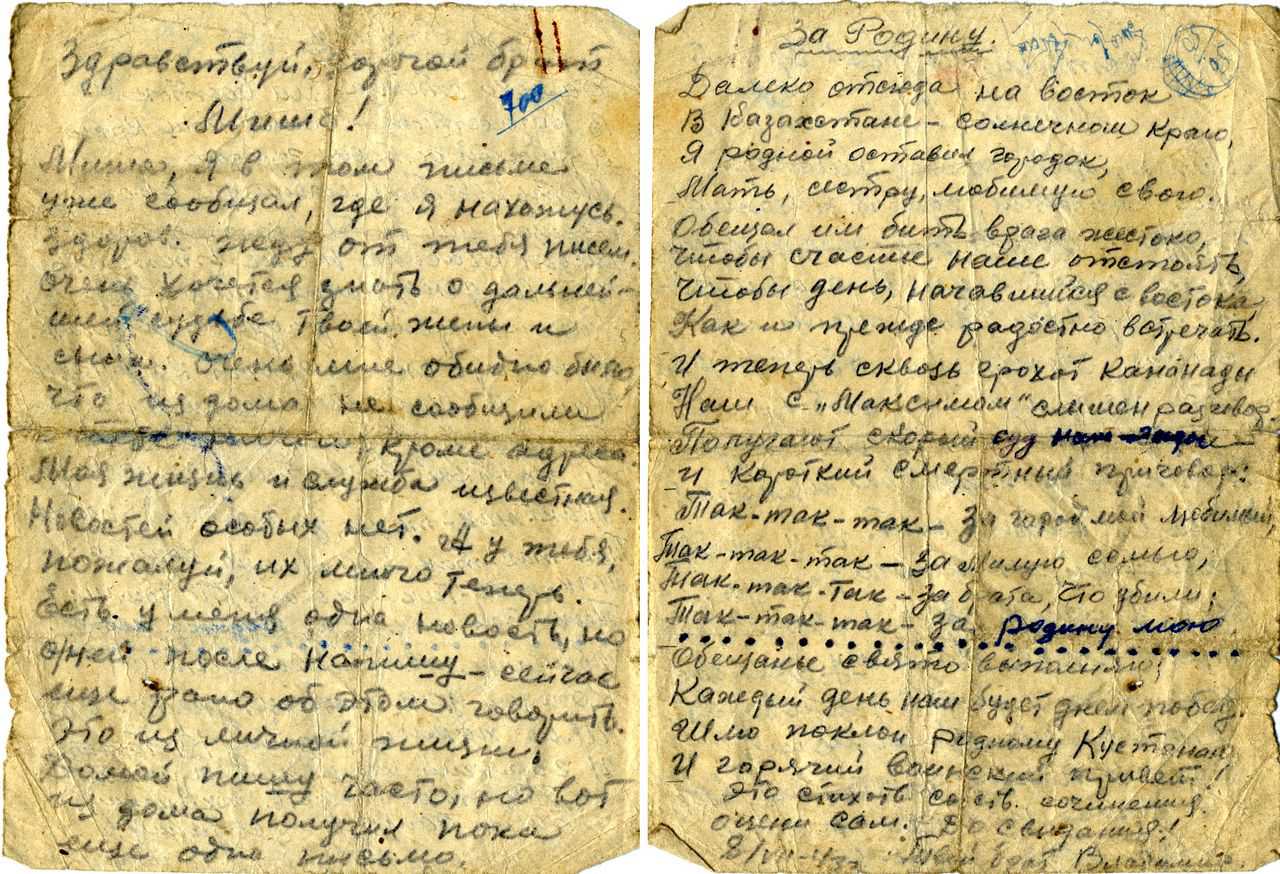 Здравствуй, дорогой брат
Миша!
700
Миша, я в том письме
уже сообщал, где я нахожусь.
Здоров. Жду от тебя писем.
Очень хочется знать о дальней-
шей судьбе твоей жены и
сына. Очень мне обидно было,
что из дома не сообщили
кроме адреса.
Моя жизнь и служба известная.
Новостей особых нет. А у тебя,
пожалуй, их много теперь.
Есть у меня одна новость, но
о ней после напишу – сейчас
еще рано об этом говорить.
Это из личной жизни.
Домой пишу часто, но вот
из дома получил пока
еще одно письмо.
За Родину.
Далеко отсюда на восток
В Казахстане – солнечном краю,
Я родной оставил городок,
Мать, сестру, любимую свою.
Обещал им бить врага жестоко,
Чтобы счастье наше отстоять,
Чтобы день, начавшийся с востока,
Как и прежде радостно встречать.
И теперь сквозь грохот канонады
Наш с „Максимом" слышен разговор
скорый суд
И короткий смертный приговор:
Так-так-так – За город мой любимый,
Так-так-так – За милую семью,
Так-так-так – За брата, что убили;
Так-так-так – За родину мою.
Обещанье свято выполняю;
Каждый день наш будет днем побед.
Шлю поклон родному Кустанаю
И горячий воинский привет!
Это стихотв. собств. сочинения.
Оцени сам. До свидания!
Твой брат Владимир.